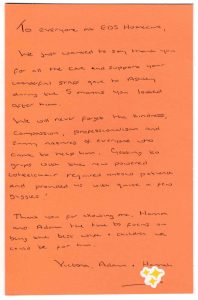 To everyone at EDS Homecare,
We just wanted to say thank you
for all the care and support your
wonderful staff gave to Ashley
during the 5 months you looked
after him.
We will never forget the kindness,
compassion, professionalism and
funny natures of everyone who
came to help him. Getting to
grips with the new powered
wheelchair required patience
and provided us with quite a few
giggles!
Thank you for allowing me, Hannah
and Adam the time to focus on
being the best wife + children we
could be for him.
Victoria, Adam + Hannah